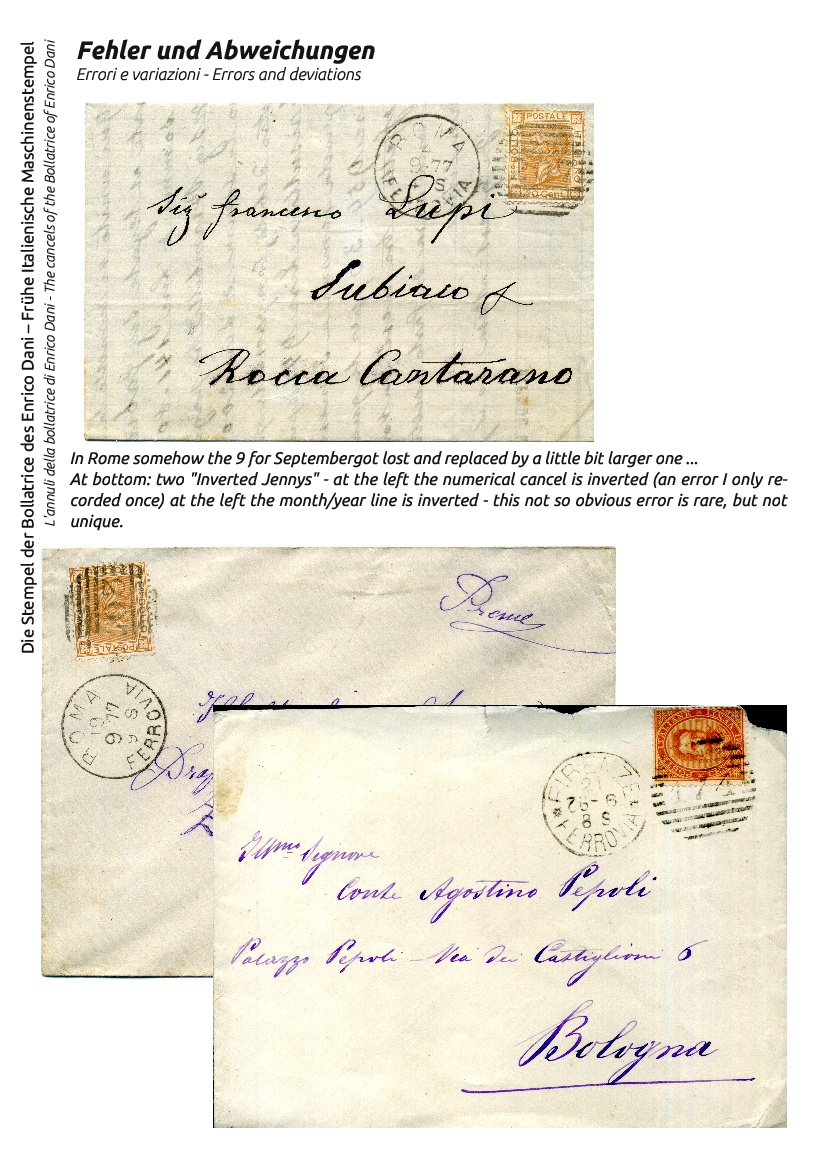 Die Stempel der Bollatrice des Enrico Dani – Frühe Italienische Maschinenstempel
L'annuli della bollatrice di Enrico Dani - The cancels of the Bollatrice of Enrico Dani
Fehler und Abweichungen
Errori e variazioni - Errors and deviations
ROMA
4
9-77
S
FERROVIA
POSTALE
20 Cent
Sig francesco Lupi
Subiaco
Rocca Cantarano
In Rome somehow the 9 for Septembergot lost and replaced by a little bit larger one ...
At bottom: two "Inverted Jennys" - at the left the numerical cancel is inverted (an error I only re-
corded once) at the left the month/year line is inverted - this not so obvious error is rare, but not
unique.
POSTALE
ROMA
19
9 77
9 S
FERROVIA
FIRENZE
21
8 S
FERROVIA
Illmo Signore
Conte Agostino Pepoli
Palazzo Pepoli - Via dei Castiglioni 6
Bologna